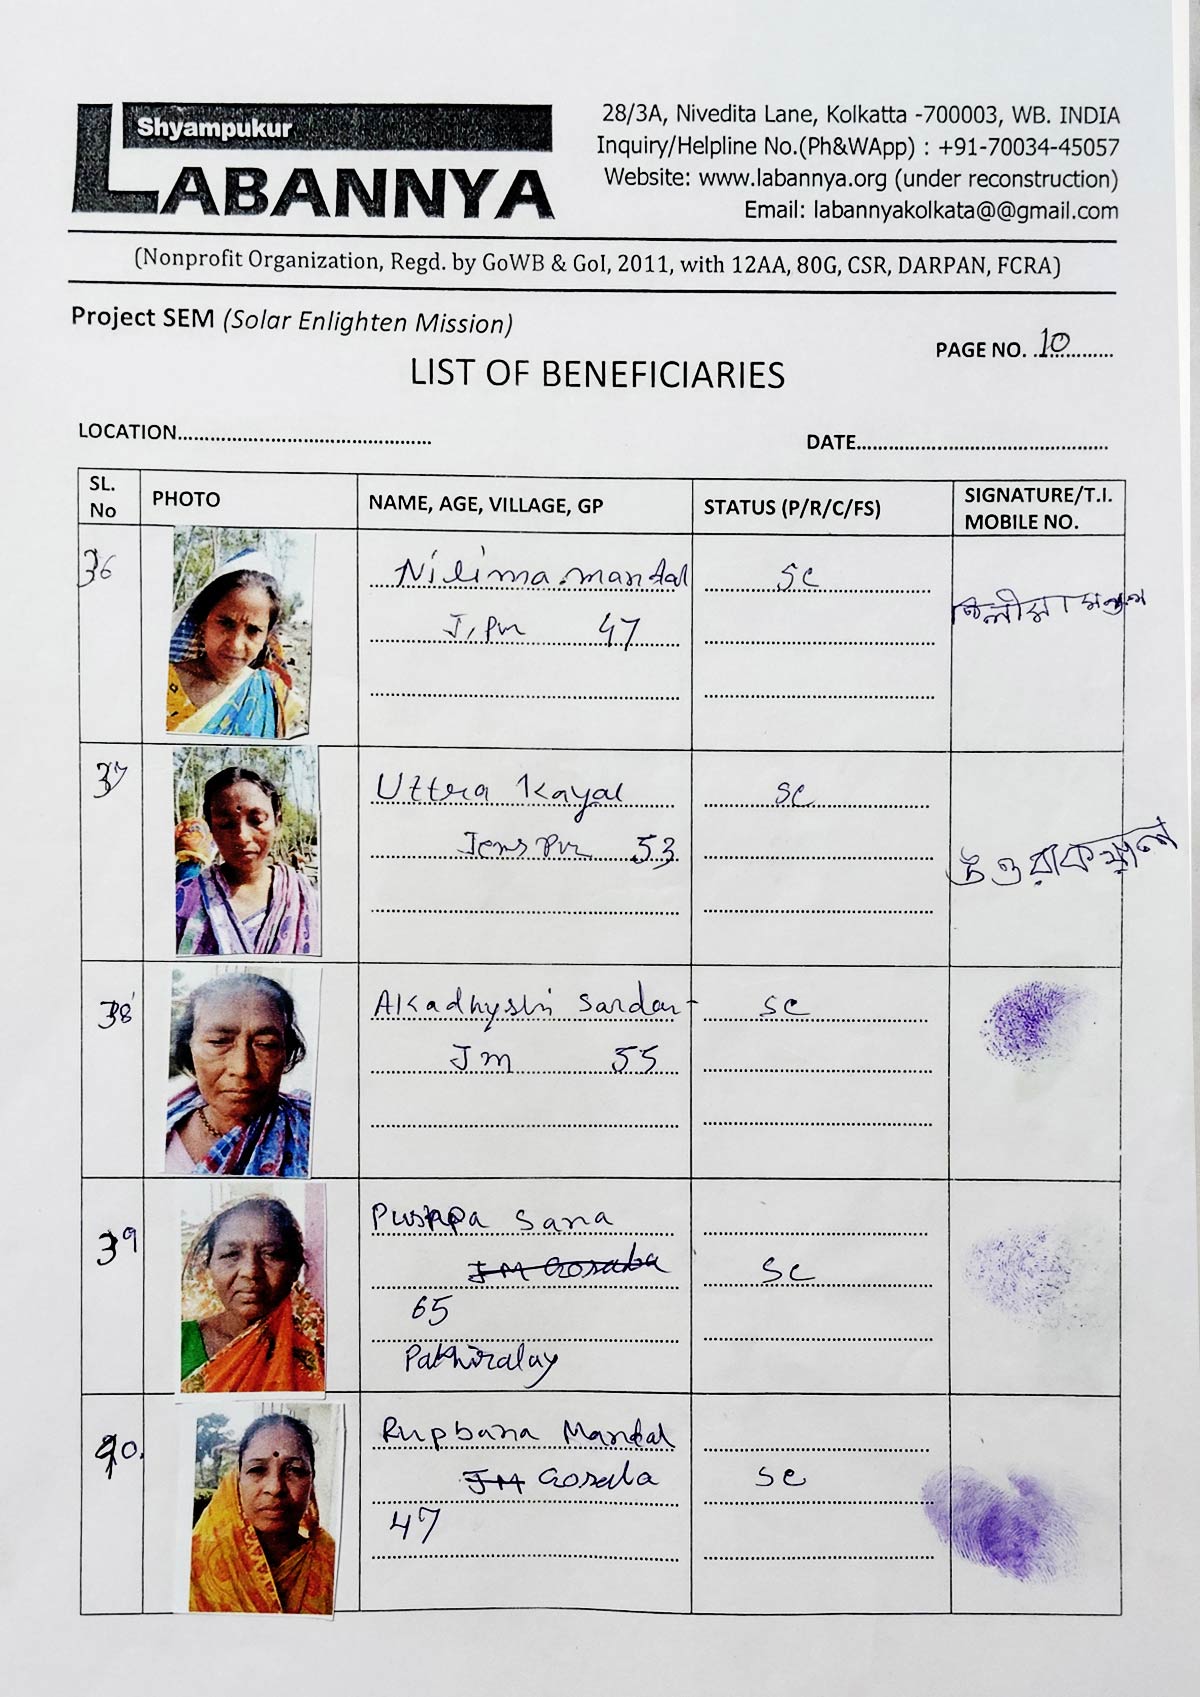 Shyampukur
LABANNYA
28/3A, Nivedita Lane, Kolkatta -700003, WB. INDIA
Inquiry/Helpline No.(Ph&WApp) : +91-70034-45057
Website: www.labannya.org (under reconstruction)
Email: labannyakolkata@@gmail.com
(Nonprofit Organization, Regd. by GoWB & GoI, 2011, with 12AA, 80G, CSR, DARPAN, FCRA)
Project SEM (Solar Enlighten Mission)
PAGE NO. 10
LIST OF BENEFICIARIES
LOCATION
DATE
SL. No PHOTO NAME, AGE, VILLAGE, GP STATUS (P/R/C/FS) SIGNATURE/T.I. MOBILE NO.
36 Nilima mandal SC
মণ্ডল
47
37 Uttra Kayal SC
53 উত্তরা কয়াল
38 Sardar SC
JM 55
39 Puspa Sana
JM Gosaba SC
65
Pakhiralay
40. Rupbana Mandal
JM Gosaba SC
47